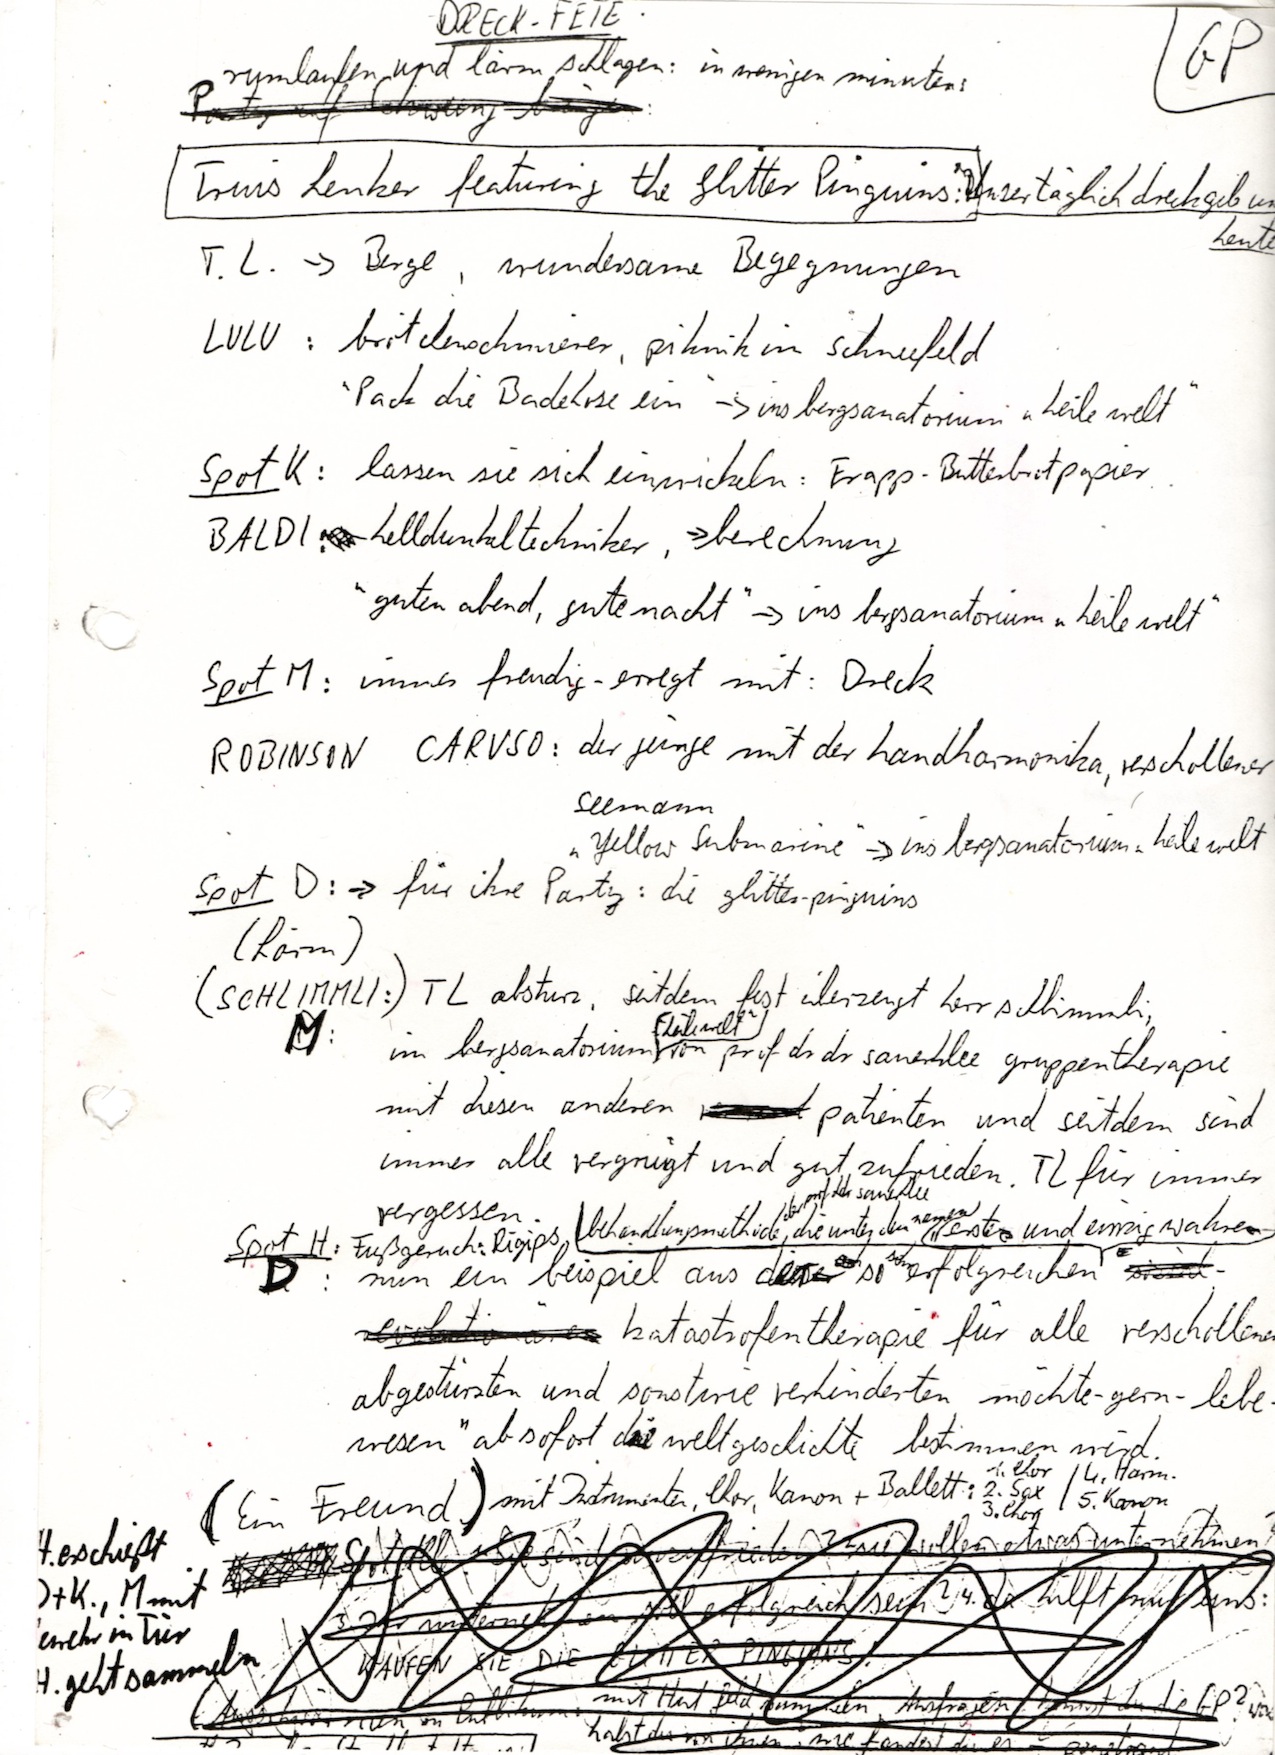 DRECK-FETE.
GP
rumlaufen und lärm schlagen: in wenigen minuten:
Party auf
Truis Lenker featuring the Glitter Pinguins: "Unser täglich dreck gib un
heute
T.L. -> Berge, wundersame Begegnungen
LULU: brötchenschmierer, piknik im Schneefeld
"Pack die Badehose ein" -> ins bergsanatorium "heile welt"
Spot K: lassen sie sich einwickeln: Frapp-Butterbrotpapier
BALDI: helldunkeltechniker, -> berechnung
"guten abend, gute nacht" -> ins bergsanatorium "heile welt"
Spot M: immer freudig-erregt mit: Dreck
ROBINSON CARUSO: der junge mit der handharmonika, verschollener
seemann
"Yellow Submarine" -> ins bergsanatorium "heile welt
Spot D: -> für ihre Party: die glitter-pinguins
(Lärm)
(SCHLIMMLI:) TL absturz, seitdem fest überzeugt herr schlimmli;
"heile welt"
M: im bergsanatorium von prof dr dr sauerklee gruppentherapie
mit diesen anderen patienten und seitdem sind
immer alle vergnügt und gut zufrieden. TL für immer
vergessen.
der prof dr dr sauerklee
Spot H: Fußgeruch: Rigips, behandlungsmethode, die unter dem namen "ersten und einzig wahren
D: nun ein beispiel aus der so erfolgreichen
katastrofentherapie für alle verschollenen
abgestürzten und sonstwie verhinderten möchte-gern-lebe-
wesen" ab sofort die weltgeschichte bestimmen wird.
(Ein Freund) mit Instrumenten, Chor, Kanon + Ballett: 1. Chor
2. Sax
3. Chor
4. Harm.
5. Kanon
H. erschießt
D+K., M mit
Gewehr in Tür
H. geht sammeln
Spot alle: Sie sind unzufrieden? sie wollen etwas unternehmen?
3. Ihr unternehmen soll erfolgreich sein? 4. da hilft nur eins:
KAUFEN SIE DIE GLITTER PINGUINS!
mit Hut Geld sammeln, Ausfragen: kennst du die GP?